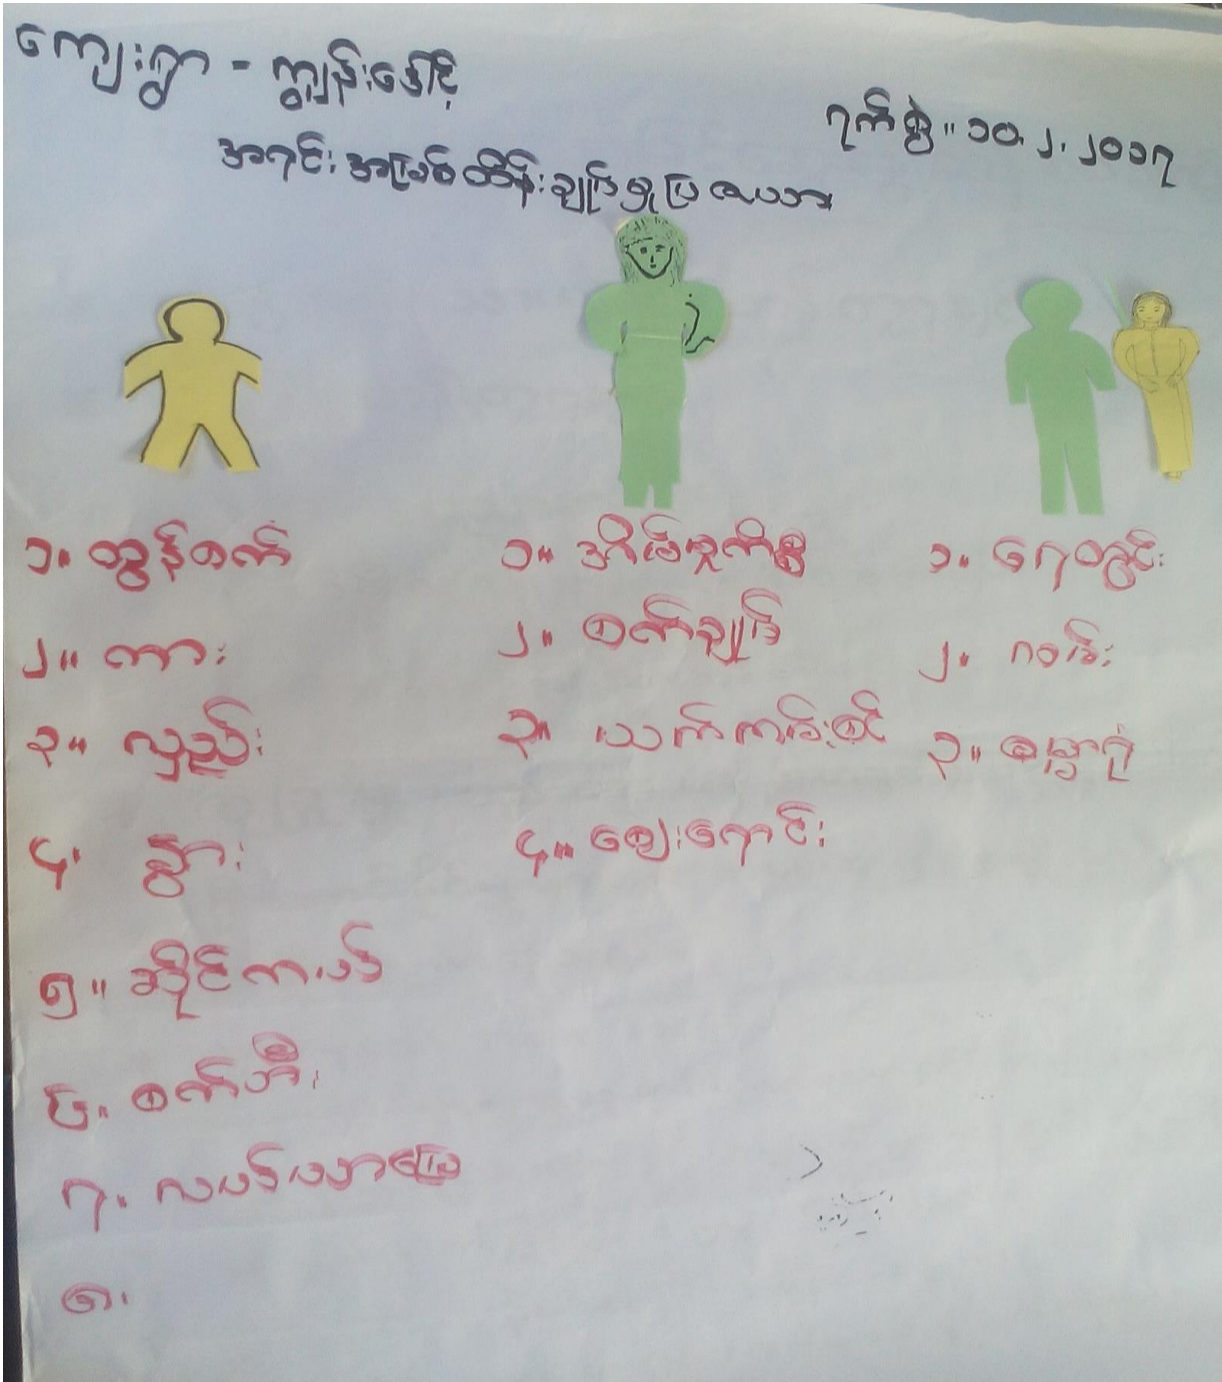 ကျေးရွာ - ကျွန်းခေါင်
ရက်စွဲ။ ၁၀.၂.၂၀၁၇
အရင်းအမြစ်ထိန်းချုပ်မှုပြဇယား
၁။ ထွန်စက်
၂။ ကား
၃။ လှည်း
၄။ နွား
၅။ ဆိုင်ကယ်
၆။ စက်ဘီး
၇။ လယ်ယာမြေ
၈။
၁။ အိမ်မှုကိစ္စ
၂။ စက်ချုပ်
၃။ ယက်ကန်းစင်
၄။ ဈေးရောင်း
၁။ ရေတွင်း
၂။ ဂဝန်း
၃။ စပါးကျီ